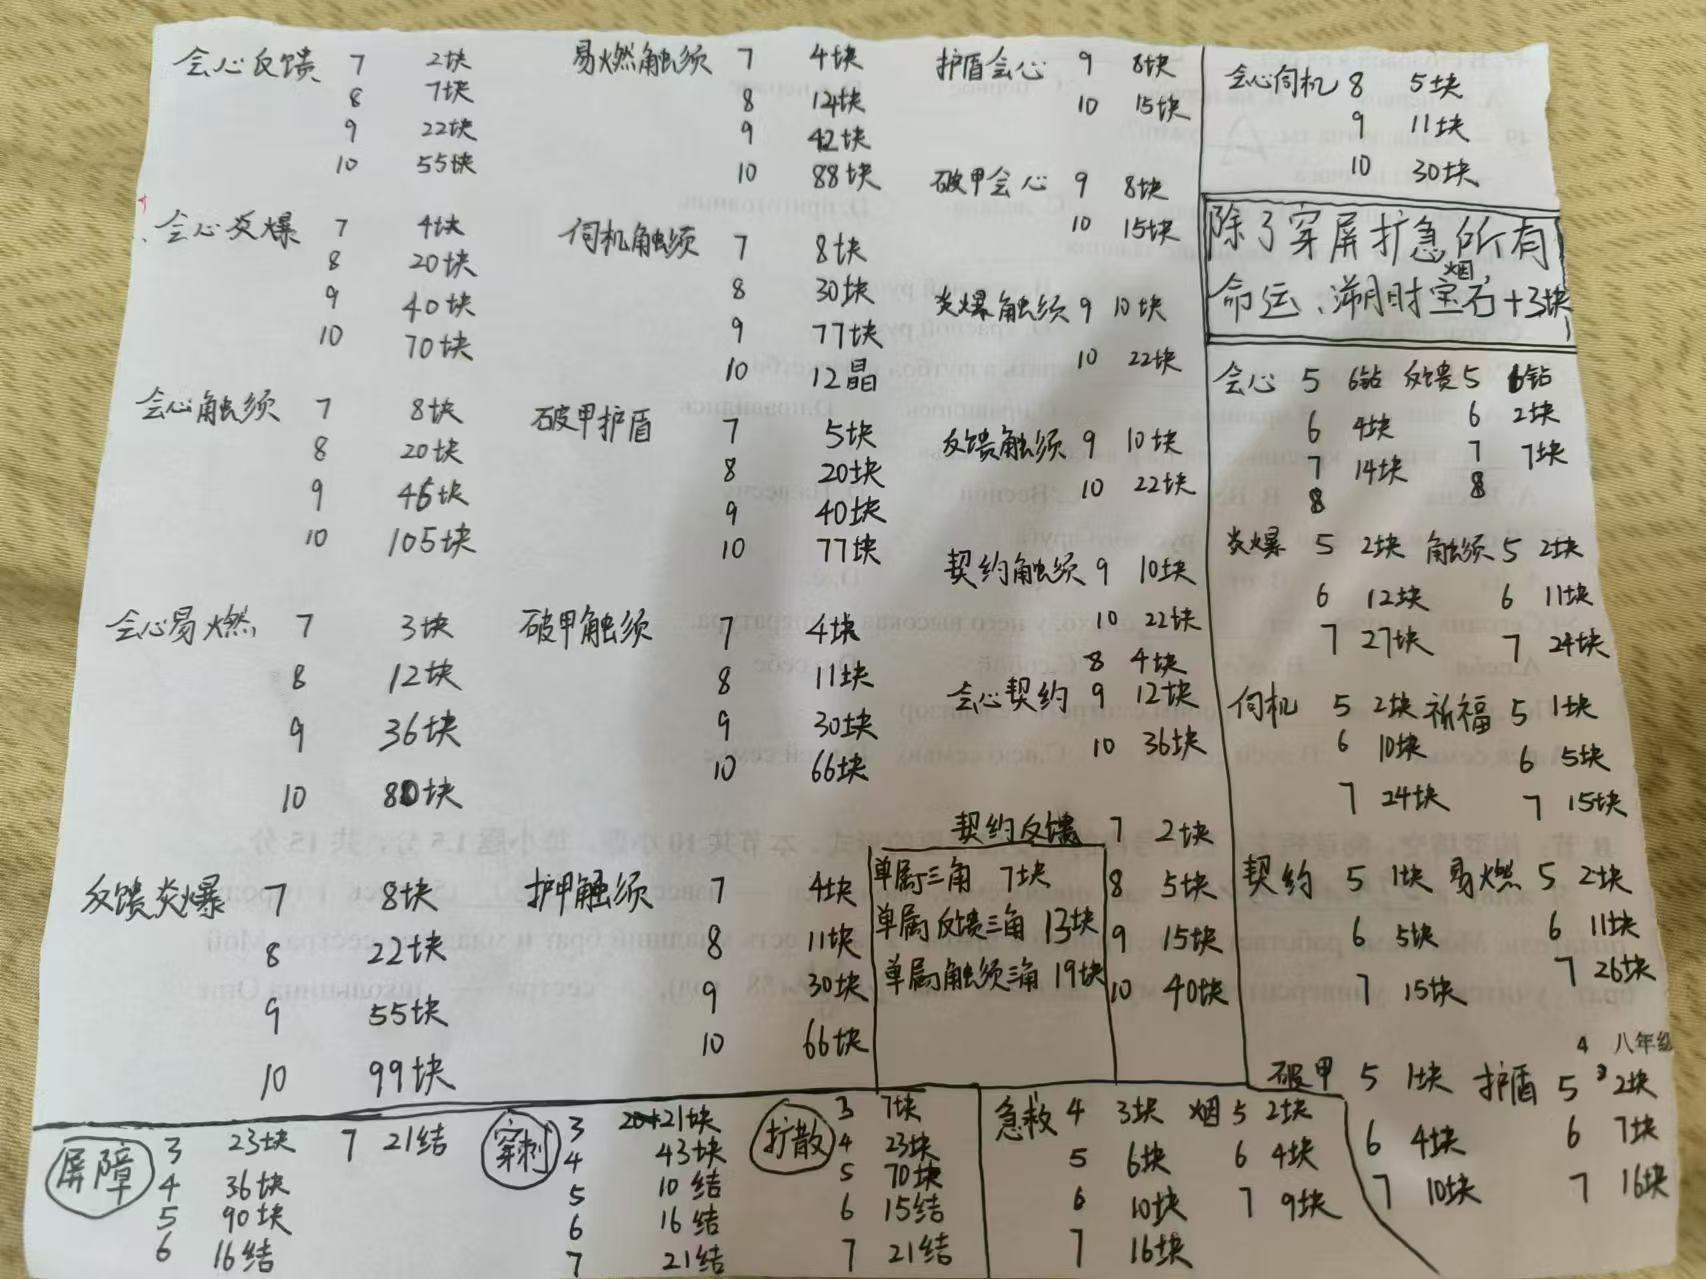 会心反馈 7 2块
8 7块
9 22块
10 55块
会心炎爆 7 4块
8 20块
9 40块
10 70块
会心触须 7 8块
8 20块
9 45块
10 105块
会心易燃 7 3块
8 12块
9 36块
10 80块
反馈炎爆 7 8块
8 22块
9 55块
10 99块
易燃触须 7 4块
8 12块
9 42块
10 88块
伺机触须 7 8块
8 30块
9 77块
10 12晶
破甲护盾 7 5块
8 20块
9 40块
10 77块
破甲触须 7 4块
8 11块
9 30块
10 66块
护甲触须 7 4块
8 11块
9 30块
10 66块
护盾会心 9 8块
10 15块
破甲会心 9 8块
10 15块
炎爆触须 9 10块
10 22块
反馈触须 9 10块
10 22块
契约触须 9 10块
10 22块
8 4块
会心契约 9 12块
10 36块
契约反馈 7 2块
8 5块
9 15块
10 40块
单属三角 7块
单属反馈三角 13块
单属触须三角 19块
会心伺机 8 5块
9 11块
10 30块
除了穿屏扩急烟,所有
命运、溯时宝石+3块
会心 5 6钻 反馈 5 6钻
6 4块 6 2块
7 14块 7 7块
8 8
炎爆 5 2块 触须 5 2块
6 12块 6 11块
7 27块 7 24块
伺机 5 2块 祈福 5 1块
6 10块 6 5块
7 24块 7 15块
契约 5 1块 易燃 5 2块
6 5块 6 11块
7 15块 7 26块
4 八年级
破甲 5 1块 护盾 5 2块
6 4块 6 7块
7 10块 7 16块
屏障 3 23块 7 21结
4 36块
5 90块
6 16结
穿刺 3 21块
4 43块
5 10结
6 16结
7 21结
扩散 3 7块
4 23块
5 70块
6 15结
7 21结
急救 4 3块 烟 5 2块
5 6块 6 4块
6 10块 7 9块
7 16块